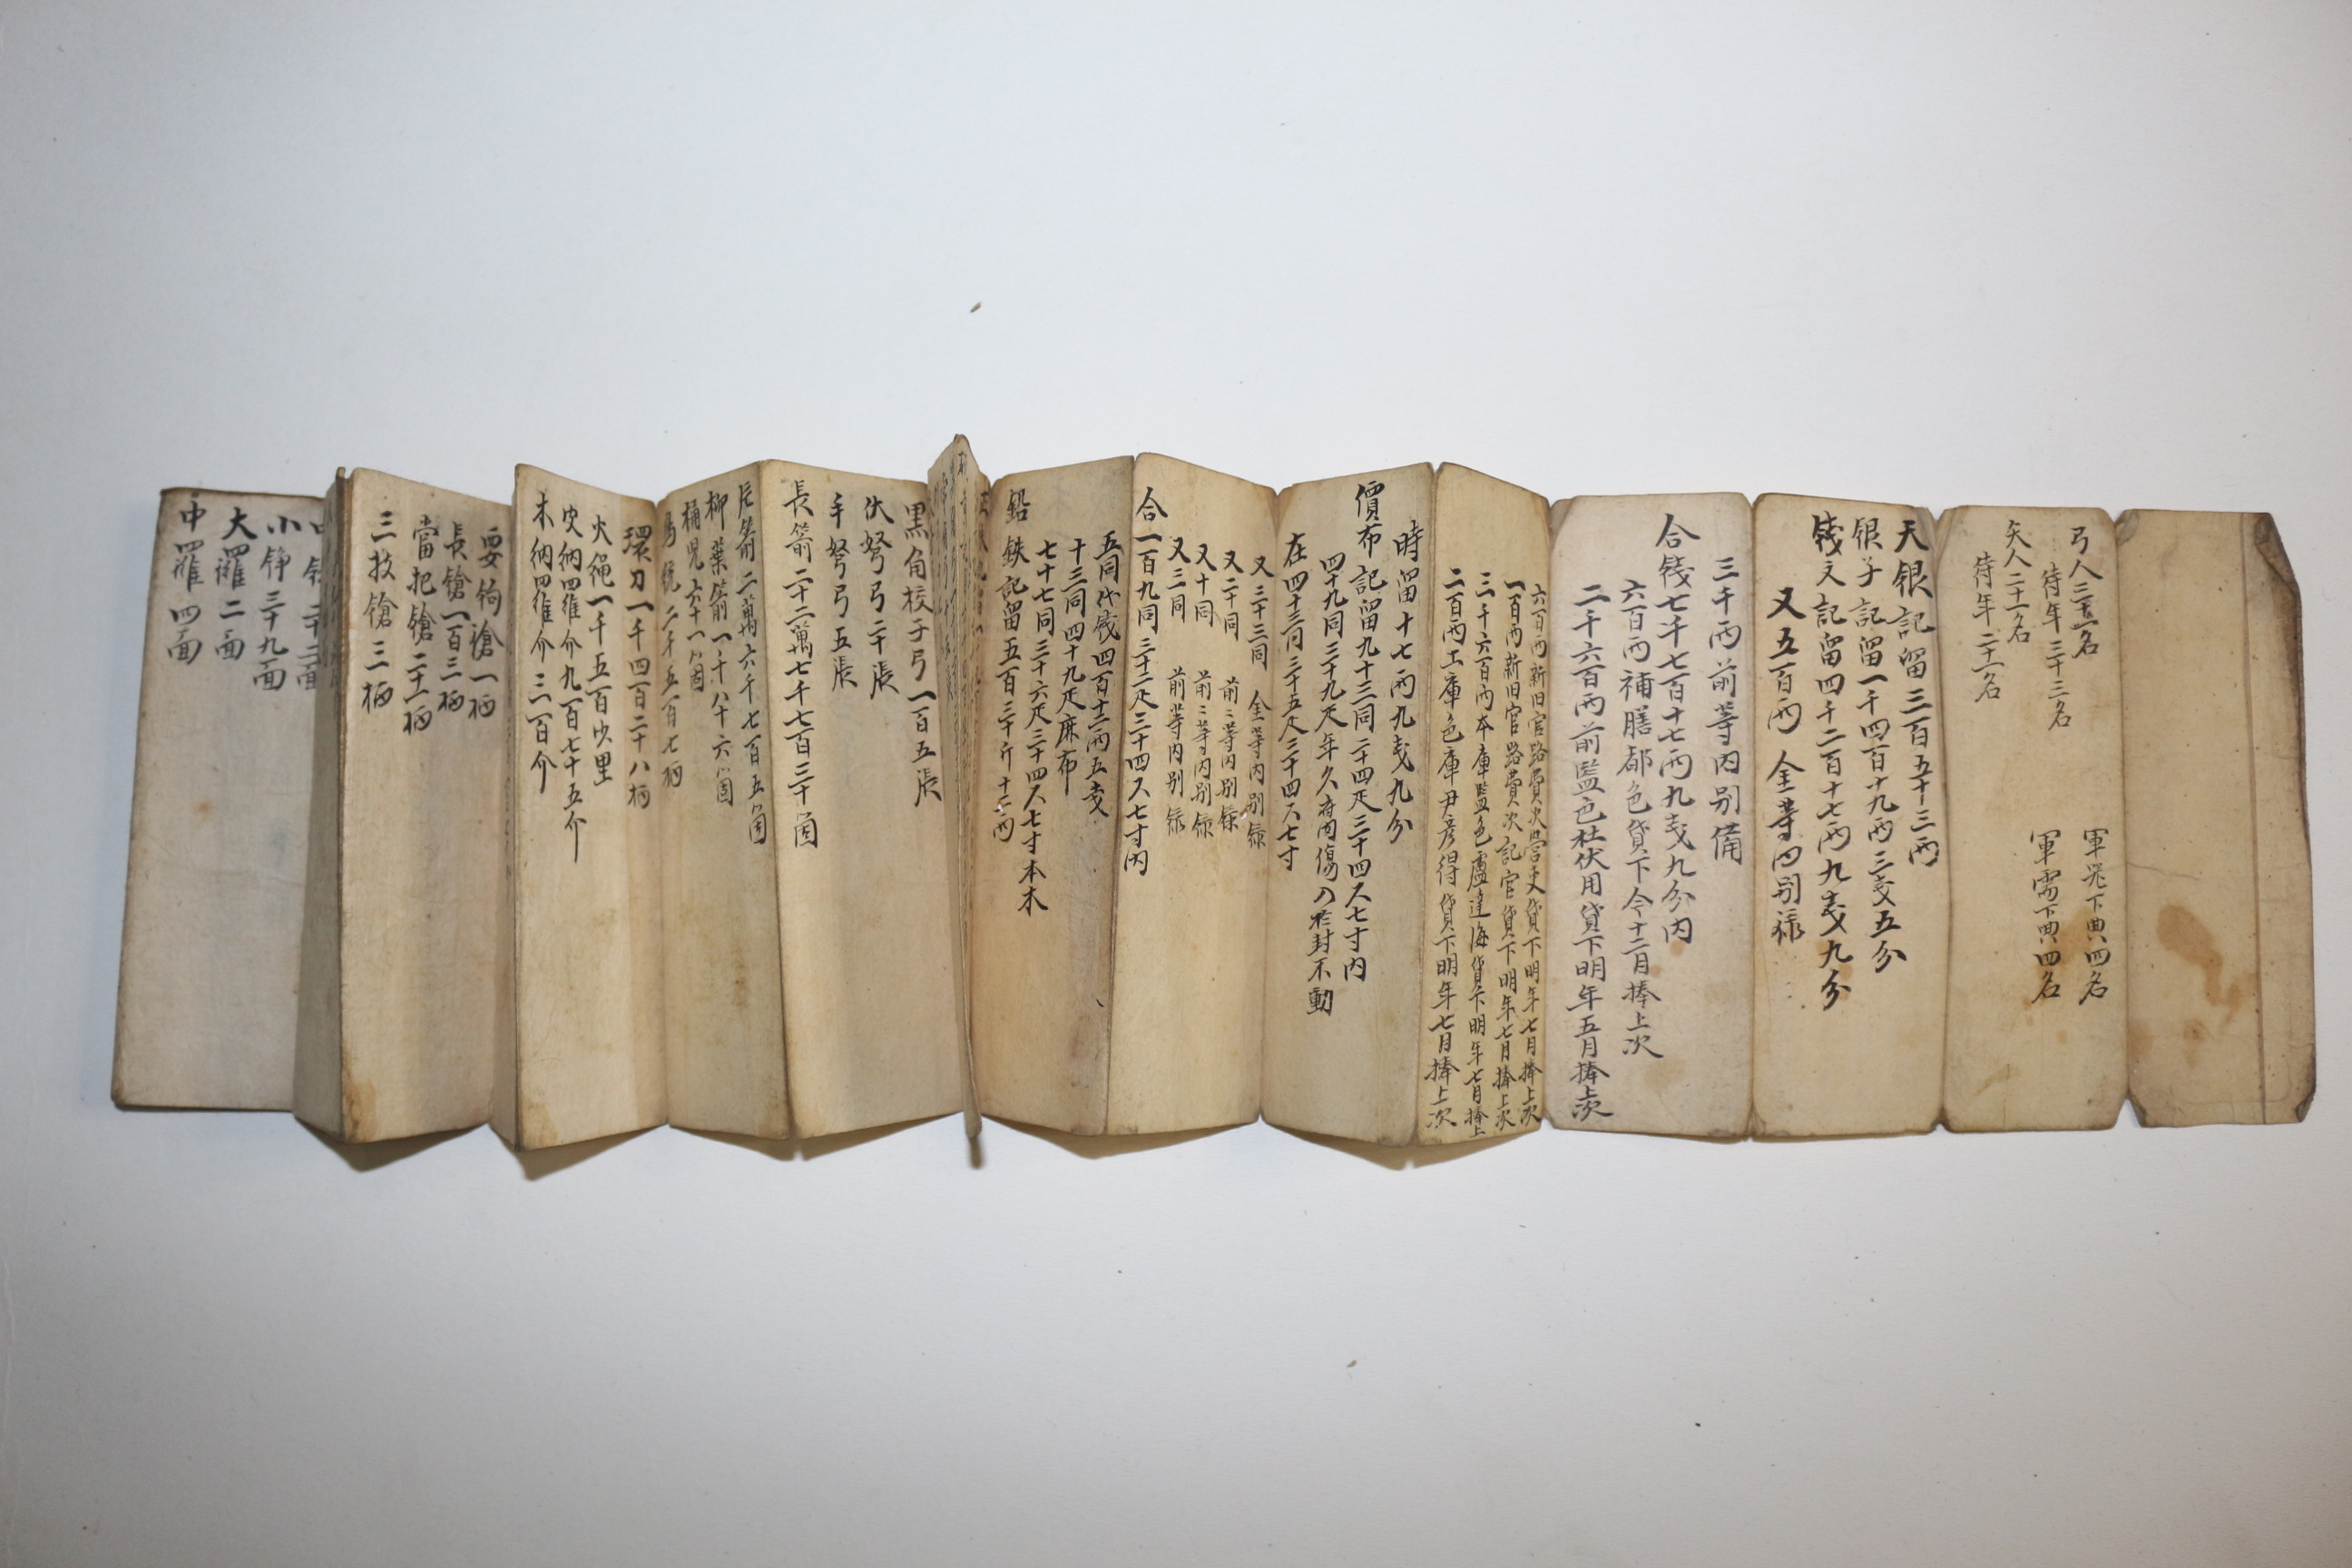 弓人三十一名
待年三十三名
矢人二十一名
待年二十一名
軍器下典四名
軍需下典四名
天银記留三百五十三兩
银子記留一千四百十九兩三戔五分
錢文記留四千二百十七兩九戔九分
又五百兩 全等內別錄
三千兩前等內別備
合錢七千七百十七兩九戔九分內
六百兩補膳都色貸下今十二月捧上次
二千六百兩前監色杜伏用貸下明年五月捧上次
六百兩新旧官路費次營吏貸下明年七月捧上次
一百兩新旧官路費次記官貸下明年七月捧上次
三千六百內本庫監色盧達海貸下明年七月捧上
二百兩工庫色庫尹彦得貸下明年七月捧上次
時留十七兩九戔九分
價布記留九十三同二十四疋三十四尺七寸內
四十九同三十九疋年久腐內傷入於封不動
在四十三同三十五疋三十四尺七寸
又三十三同 全等內別錄
又二十同 前二等內別錄
又十同 前二等內別錄
又三同 前等內別錄
合一百九同三十二疋三十四尺七寸內
五同代戔四百十二兩五戔
十三同四十九疋麻布
七十七同三十六疋三十四尺七寸本木
鉛鉄記留五百三十斤十二兩
黒角校子弓一百五張
伏弩弓二十張
手弩弓五張
長箭二十二萬七千七百三十箇
片箭二萬六千七百五箇
柳葉箭一千八十六箇
桶兒六十一箇
鳥銃二千五百七柄
環刀一千四百二十八柄
火繩一千五百沙里
皮納四羅介九百七十五介
木納四羅介三百介
要钩鎗一柄
長鎗一百三柄
當把鎗二十一柄
三枝鎗三柄
小錚三十九面
大羅二面
中羅四面